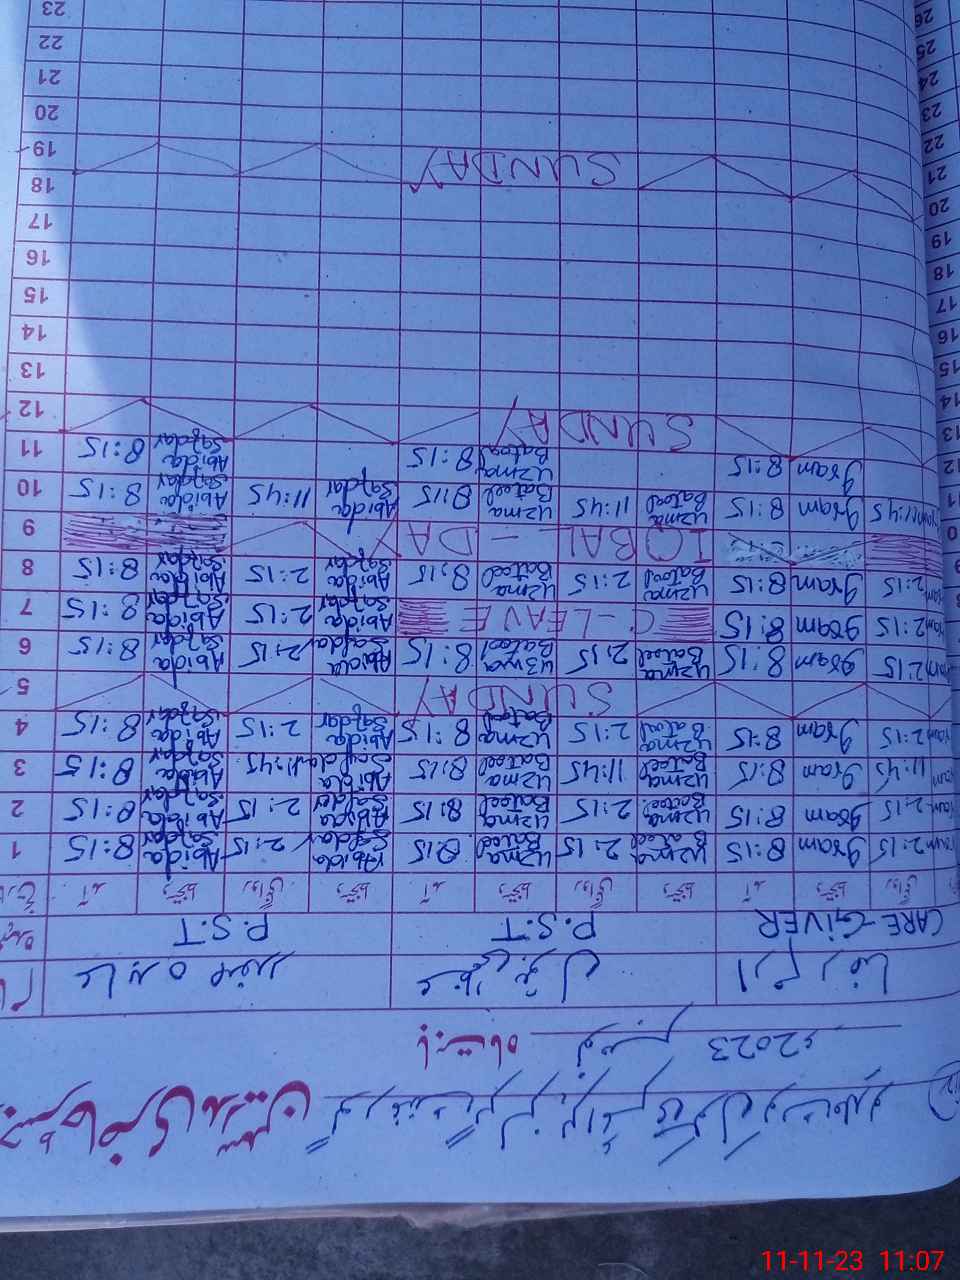 رجسٹر حاضری مدرسین گورنمنٹ گرلز پرائمری سکول
بابت ماہ نومبر 2023ء
نام عابدہ صفدر عظمیٰ بتول ارم رضا
عہدہ P.S.T P.S.T CARE-GIVER
تاریخ آمد دستخط روانگی دستخط آمد دستخط روانگی دستخط آمد دستخط روانگی
1 8:15 Abida Safdar 2:15 Abida Safdar 8:15 Uzma Batool 2:15 Uzma Batool 8:15 Iram 2:15
2 8:15 Abida Safdar 2:15 Abida Safdar 8:15 Uzma Batool 2:15 Uzma Batool 8:15 Iram 2:15
3 8:15 Abida Safdar 11:45 Abida Safdar 8:15 Uzma Batool 11:45 Uzma Batool 8:15 Iram 11:45
4 8:15 Abida Safdar 2:15 Abida Safdar 8:15 Uzma Batool 2:15 Uzma Batool 8:15 Iram 2:15
5 SUNDAY
6 8:15 Abida Safdar 2:15 Abida Safdar 8:15 Uzma Batool 2:15 Uzma Batool 8:15 Iram 2:15
7 8:15 Abida Safdar 2:15 Abida Safdar C-LEAVE 8:15 Iram 2:15
8 8:15 Abida Safdar 2:15 Abida Safdar 8:15 Uzma Batool 2:15 Uzma Batool 8:15 Iram 2:15
9 IQBAL - DAY
10 8:15 Abida Safdar 11:45 Abida Safdar 8:15 Uzma Batool 11:45 Uzma Batool 8:15 Iram 11:45
11 8:15 Abida Safdar 8:15 Uzma Batool 8:15 Iram
12 SUNDAY
13
14
15
16
17
18
19 SUNDAY
20
21
22
23
11-11-23 11:07